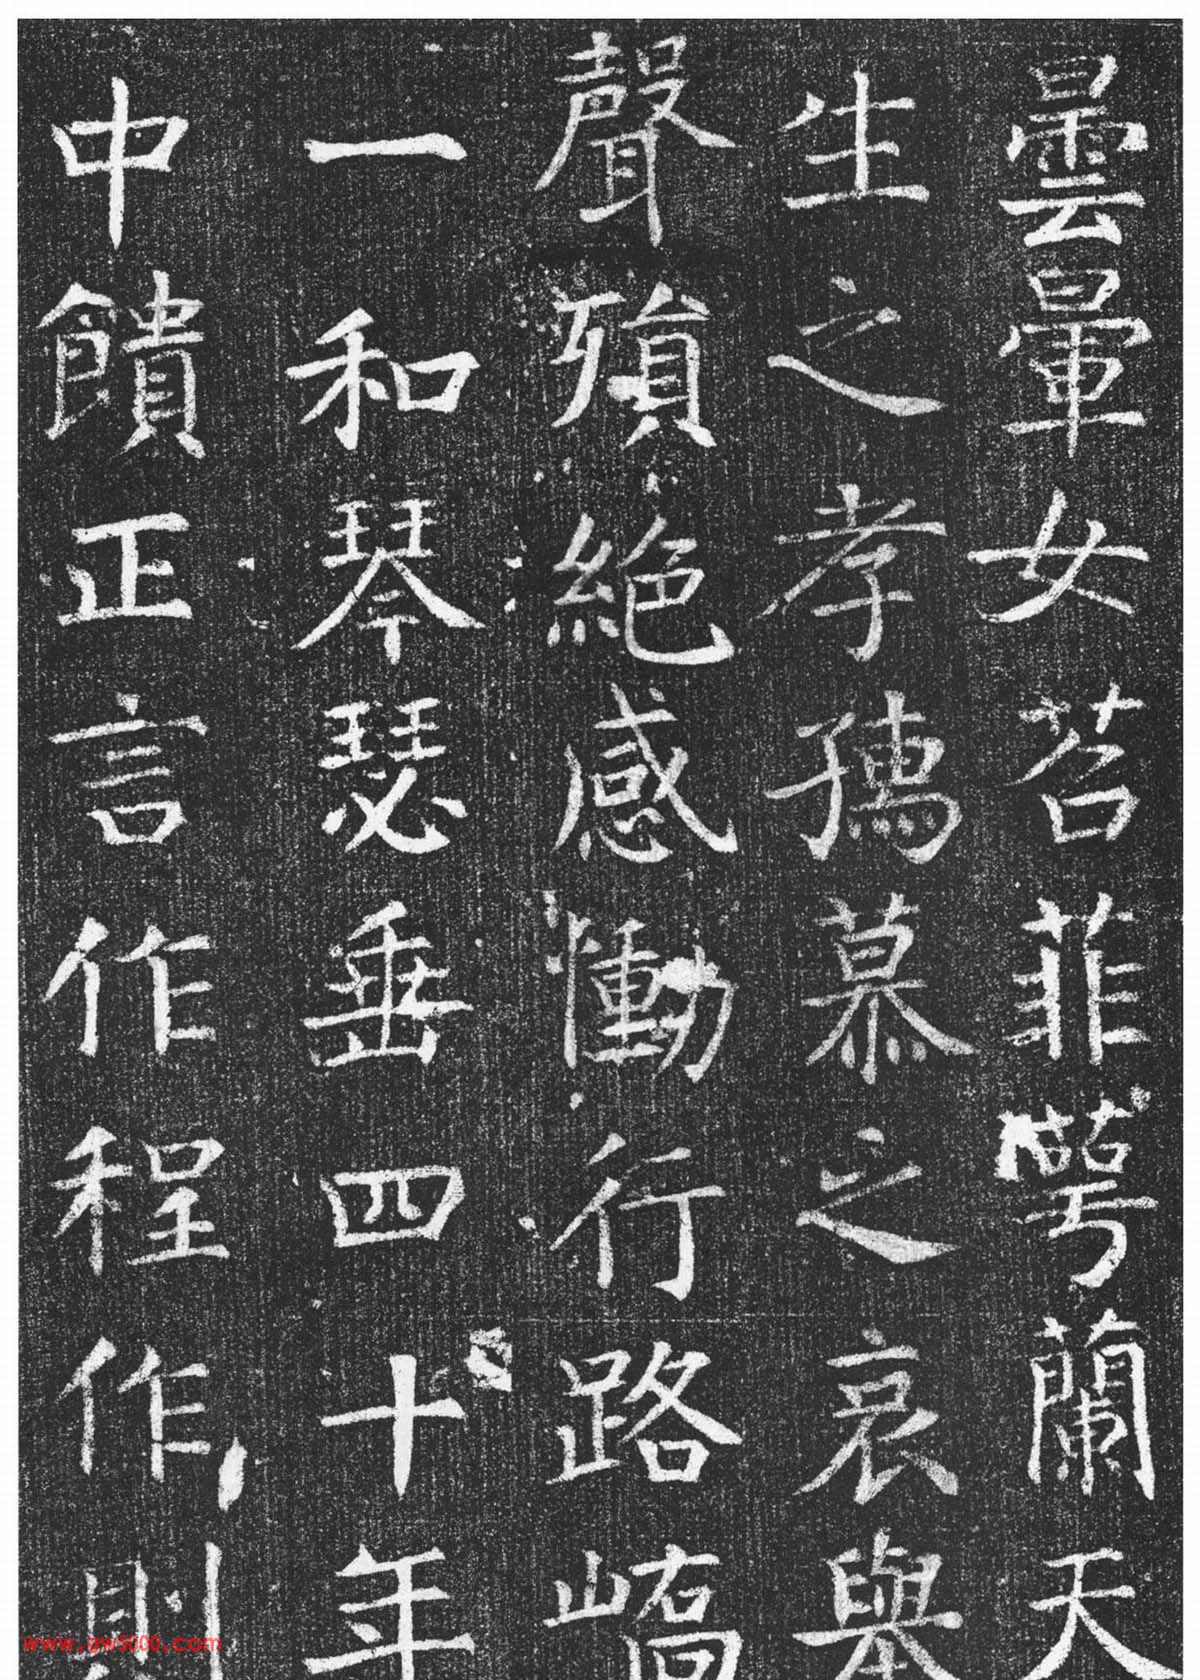 曇暈女苕菲萼蘭天
生之孝孺慕之哀舉
聲殞絕感慟行路
一和琴瑟垂四十年
中饋正言作程作則
www.gw5000.com